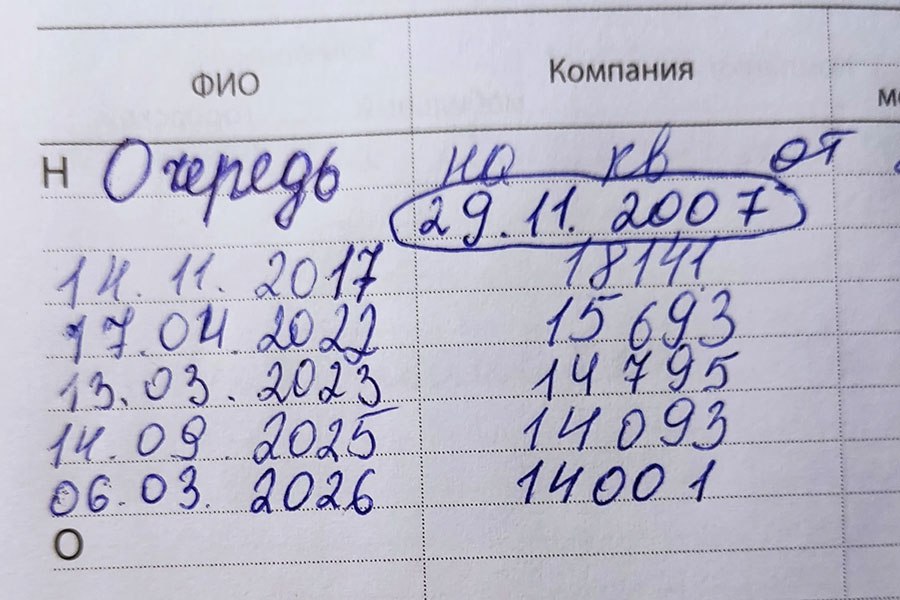 ФИО Компания
Н Очередь на кв от
29.11.2007
14.11.2017 18141
17.04.2022 15693
13.03.2023 14795
14.09.2025 14093
06.03.2026 14001
О